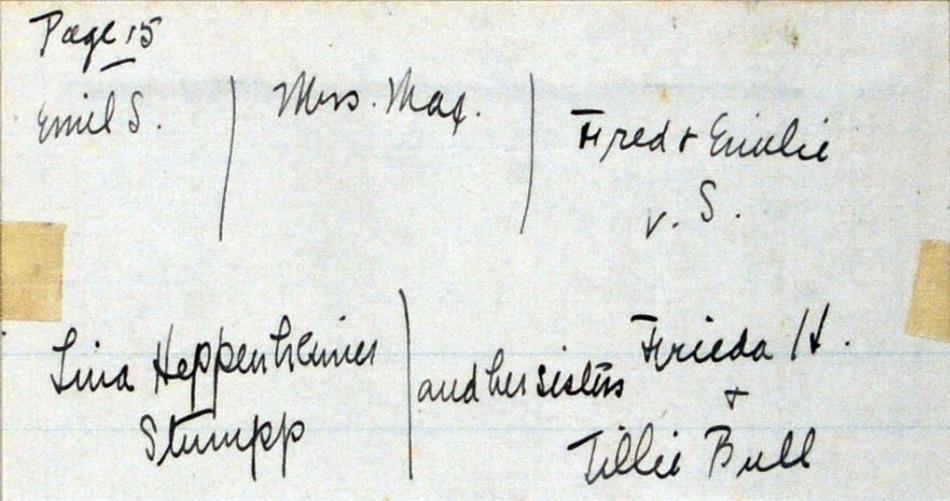 Page 15
Emil S. Mrs. Max. Fred + Emilie
v. S.
Lina Heppenheimer and her sisters Frieda H.
+
Stumpp Tillie Bull